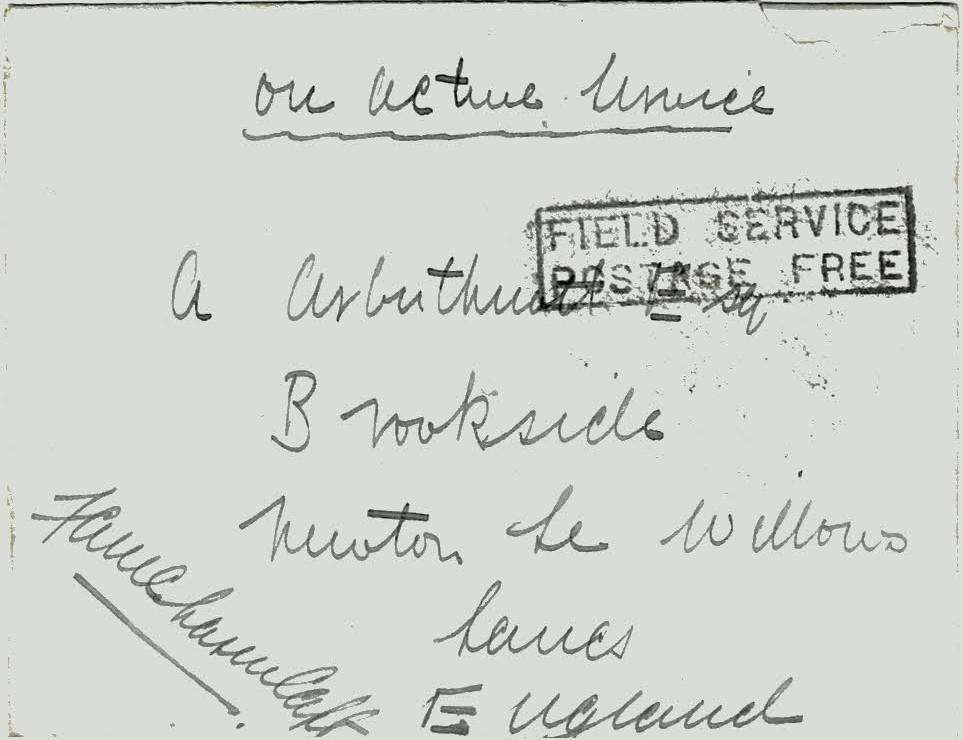 on active Service
FIELD SERVICE
POSTAGE FREE
A Arbuthnott Esq
Brookside
Newton Le Willows
Lancs
England